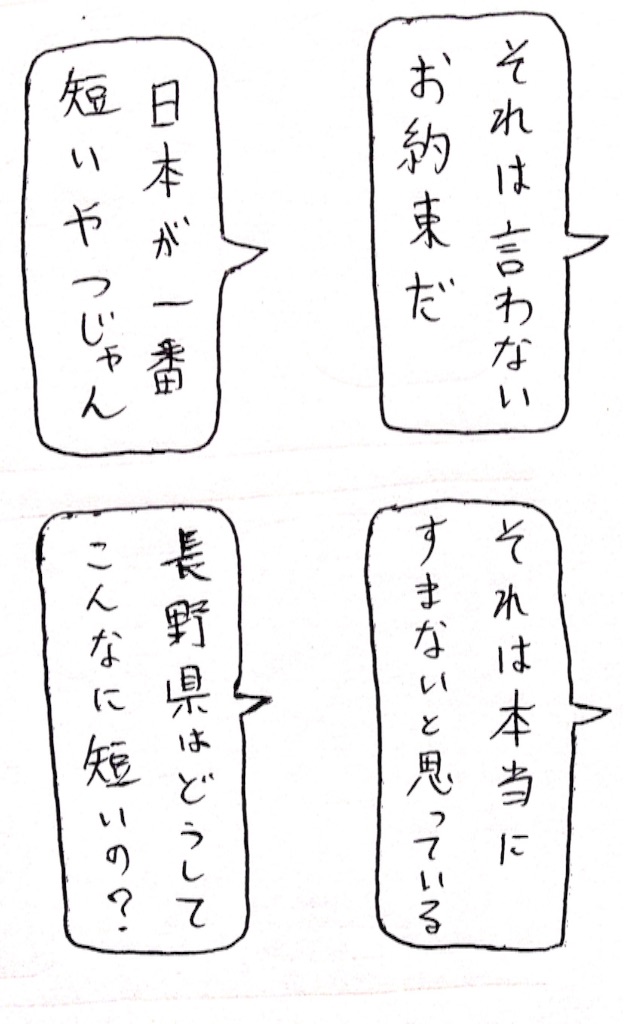 それは言わない
お約束だ
日本が一番
短いやつじゃん
それは本当に
すまないと思っている
長野県はどうして
こんなに短いの？